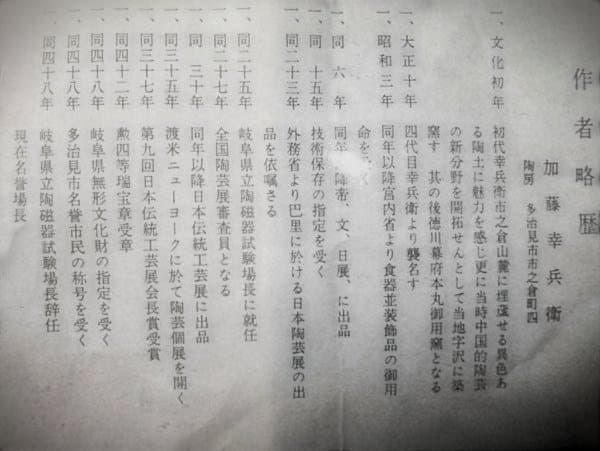 作者略歴
加藤幸兵衛
陶房 多治見市市之倉町四
一、文化初年 初代幸兵衛市之倉山麓に埋蔵せる異色あ
る陶土に魅力を感じ更に当時中国的陶芸
の新分野を開拓せんとして当地字沢に築
窯す 其の後徳川幕府本丸御用窯となる
一、大正十年 四代目幸兵衛より襲名す
一、昭和三年 同年以降宮内省より食器並装飾品の御用
命を
一、同 六年 同年 降 文、日展、に出品
一、同 十五年 技術保存の指定を受く
一、同二十三年 外務省より巴里に於ける日本陶芸展の出
品を依嘱さる
一、同二十五年 岐阜県立陶磁器試験場長に就任
一、同二十七年 全国陶芸展審査員となる
一、同 三十年 同年以降日本伝統工芸展に出品
一、同三十五年 渡米ニューヨークに於て陶芸個展を開く
一、同三十七年 第九回日本伝統工芸展会長賞受賞
一、同四十二年 勲四等瑞宝章受章
一、同四十八年 岐阜県無形文化財の指定を受く
一、同四十八年 多治見市名誉市民の称号を受く
一、同四十八年 岐阜県立陶磁器試験場長辞任
現在名誉場長